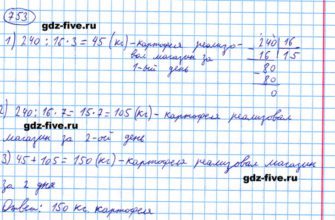 753
gdz-five.ru
1) 240 : 16 · 3 = 45 (кг) – картофеля реализо-
вал магазин за
1-ый день
240 16
16 15
80
80
0
gdz-five.ru
2) 240 : 16 · 7 = 15 · 7 = 105 (кг) – картофеля реализовал
gdz-five.ru
магазин за 2-ой день
3) 45 + 105 = 150 (кг) – картофеля реализовал магазин
gdz-five.ru
за 2 дня
Ответ: 150 кг картофеля